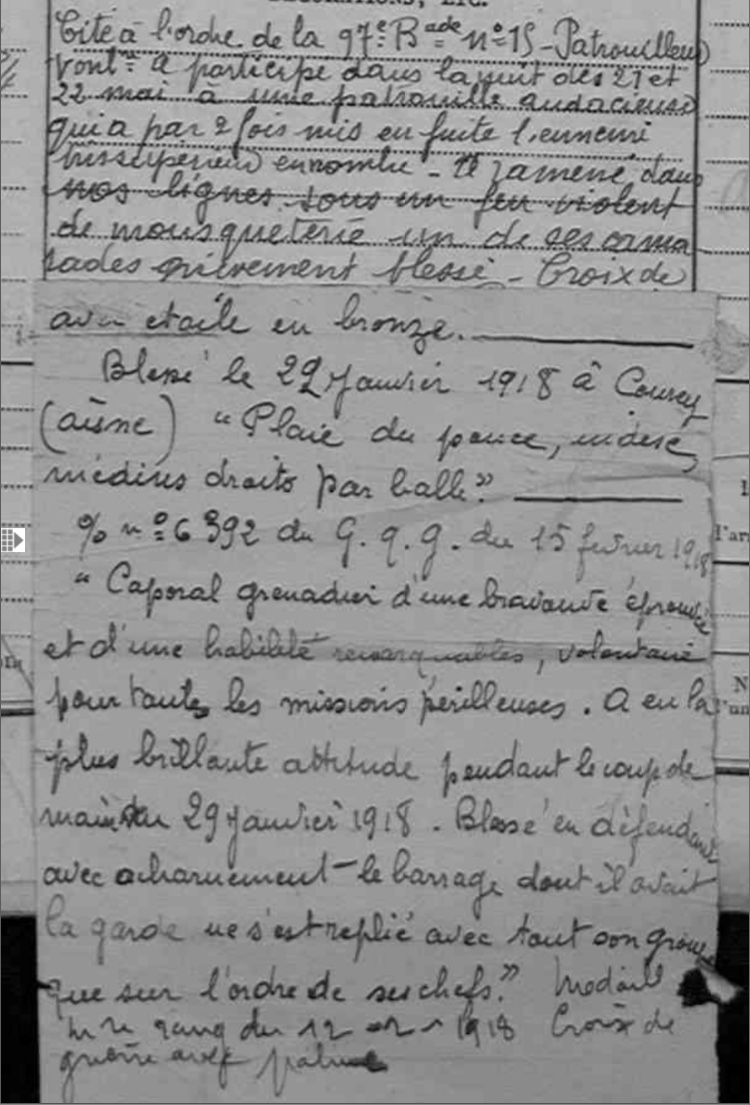 DÉCORATIONS, ETC.
Cité à l'ordre de la 97e Bade n° 15 - Patrouilleur
volre a participé dans la nuit des 21 et
22 mai à une patrouille audacieuse
qui a par 2 fois mis en fuite l'ennemi
très supérieur en nombre - A ramené dans
nos lignes sous un feu violent
de mousqueterie un de ses cama
rades grièvement blessé - Croix de
avec étoile en bronze.
Blessé le 29 Janvier 1918 à Coucy
(aisne) "Plaie du pouce, index,
médius droits par balle."
% n° 6392 du G.q.g. du 15 février 1918
"Caporal grenadier d'une bravoure éprouvée
et d'une habileté remarquables, volontaire
pour toutes les missions périlleuses. A eu la
plus brillante attitude pendant le coup de
main du 29 Janvier 1918. Blessé en défendant
avec acharnement le barrage dont il avait
la garde ne s'est replié avec tout son groupe
que sur l'ordre de ses chefs." Médaill
rang du 12-2-1918 Croix de
guerre avec palme